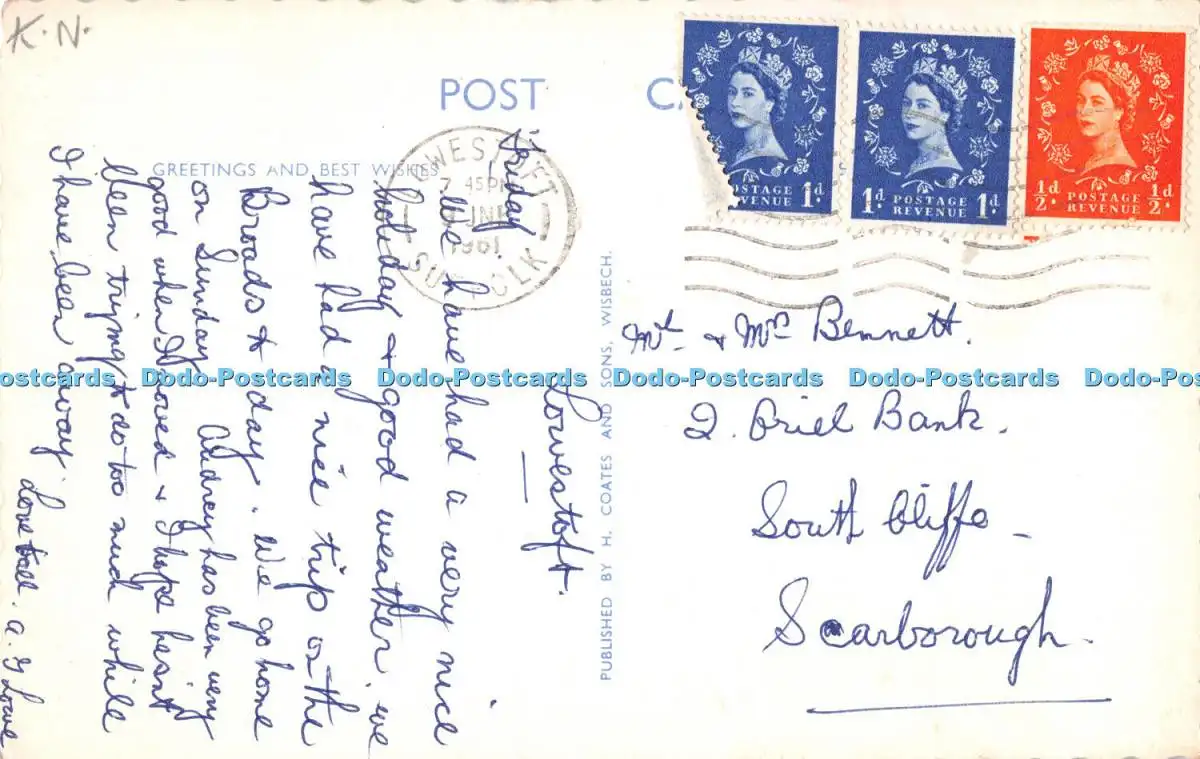 K.N.
POST
GREETINGS AND BEST WISHES
LOWESTOFT
45PM
JNE
1961
SUFFOLK
POSTAGE
REVENUE 1d
1d POSTAGE
REVENUE 1d
½d POSTAGE
REVENUE ½d
PUBLISHED BY H. COATES AND SONS, WISBECH.
Lowestoft.
Friday
We have had a very nice
holiday & good weather, we
have had a nice trip on the
Broads to day. We go home
on Sunday Audrey has been very
good when I moved & I hope hasnt
been trying to do too much while
I have been away Love to all. a.
Mr & Mrs Bennett.
2. Oriel Bank.
South Cliffe
Scarborough.
Dodo-Postcards Dodo-Postcards Dodo-Postcards Dodo-Postcards Dodo-Postcards